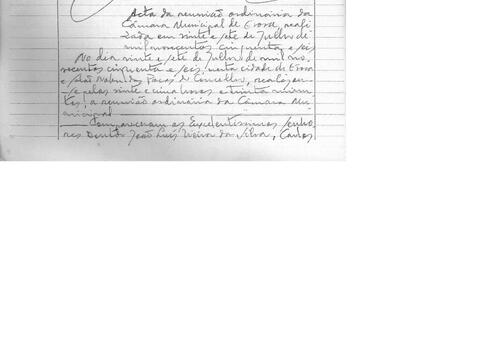 Acta da reunião ordinaria da
Câmara Municipal de Evora, reali-
zada em vinte e sete de Julho de
mil novecentos cinquenta e seis
No dia vinte e sete de Julho de mil no-
vecentos cinquenta e seis nesta cidade de Evora
e Paços do Concelho, realizou-
se pelas vinte e uma horas e trinta minu-
tos, a reunião ordinaria da Câmara Mu-
nicipal
Compareceram os Excelentissimos Senho-
res Doutor João Luis Vieira da Silva, Carlos